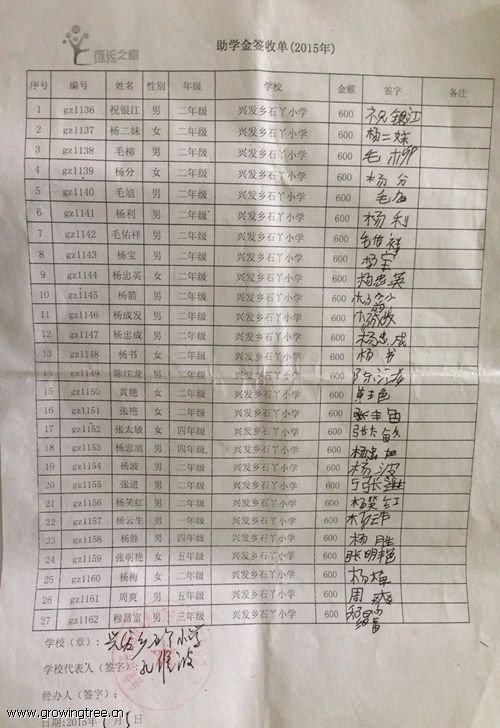 成长之树
助学金签收单(2015年)
序号 编号 姓名 性别 年级 学校 金额 签字 备注
1 gz1136 祝银江 男 二年级 兴发乡石丫小学 600 祝银江
2 gz1137 杨二妹 女 二年级 兴发乡石丫小学 600 杨二妹
3 gz1138 毛柳 男 二年级 兴发乡石丫小学 600 毛柳
4 gz1139 杨分 女 二年级 兴发乡石丫小学 600 杨分
5 gz1140 毛旭 男 二年级 兴发乡石丫小学 600 毛旭
6 gz1141 杨利 男 二年级 兴发乡石丫小学 600 杨利
7 gz1142 毛佑祥 男 二年级 兴发乡石丫小学 600 毛佑祥
8 gz1143 杨宝 男 二年级 兴发乡石丫小学 600 杨宝
9 gz1144 杨忠英 女 二年级 兴发乡石丫小学 600 杨忠英
10 gz1145 杨箭 男 二年级 兴发乡石丫小学 600
11 gz1146 杨成发 男 二年级 兴发乡石丫小学 600
12 gz1147 杨忠成 男 二年级 兴发乡石丫小学 600 杨忠成
13 gz1148 杨书 女 二年级 兴发乡石丫小学 600 杨书
14 gz1149 陈江龙 男 二年级 兴发乡石丫小学 600 陈江龙
15 gz1150 黄艳 女 二年级 兴发乡石丫小学 600
16 gz1151 张艳 女 二年级 兴发乡石丫小学 600
17 gz1152 张太敏 女 四年级 兴发乡石丫小学 600
18 gz1153 杨忠旭 男 四年级 兴发乡石丫小学 600 杨忠旭
19 gz1154 杨波 男 二年级 兴发乡石丫小学 600 杨波
20 gz1155 张进 男 二年级 兴发乡石丫小学 600 张进
21 gz1156 杨笑红 男 二年级 兴发乡石丫小学 600 杨笑红
22 gz1157 杨云生 男 一年级 兴发乡石丫小学 600
23 gz1158 杨胜 男 四年级 兴发乡石丫小学 600 杨胜
24 gz1159 张明艳 女 五年级 兴发乡石丫小学 600 张明艳
25 gz1160 杨梅 女 二年级 兴发乡石丫小学 600 杨梅
26 gz1161 周爽 男 五年级 兴发乡石丫小学 600 周爽
27 gz1162 穆昌富 男 三年级 兴发乡石丫小学 600
学校（章）：兴发乡石丫小学
学校代表人（签字）：孔维波
经办人（签字）：
日期:2015年 月 日
www.growingtree.cn www.growingtree.cn